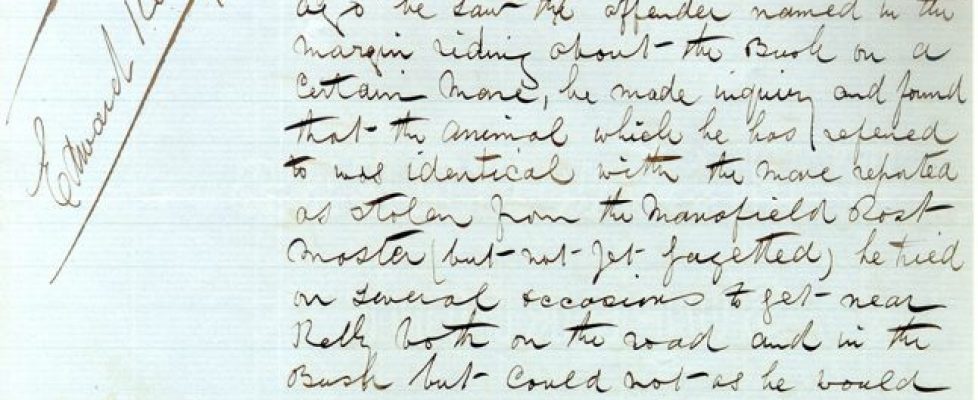 ago he saw the offender named in the
margin riding about the Bush on a
Certain Mare, he made inquiry and found
that the animal which he has refered
to was identical with the Mare reported
as stolen from the Mansfield Post
Master (but not yet gazetted) he tried
on several occasions to get near
Kelly both on the road and in the
Bush but could not as he would
Edward